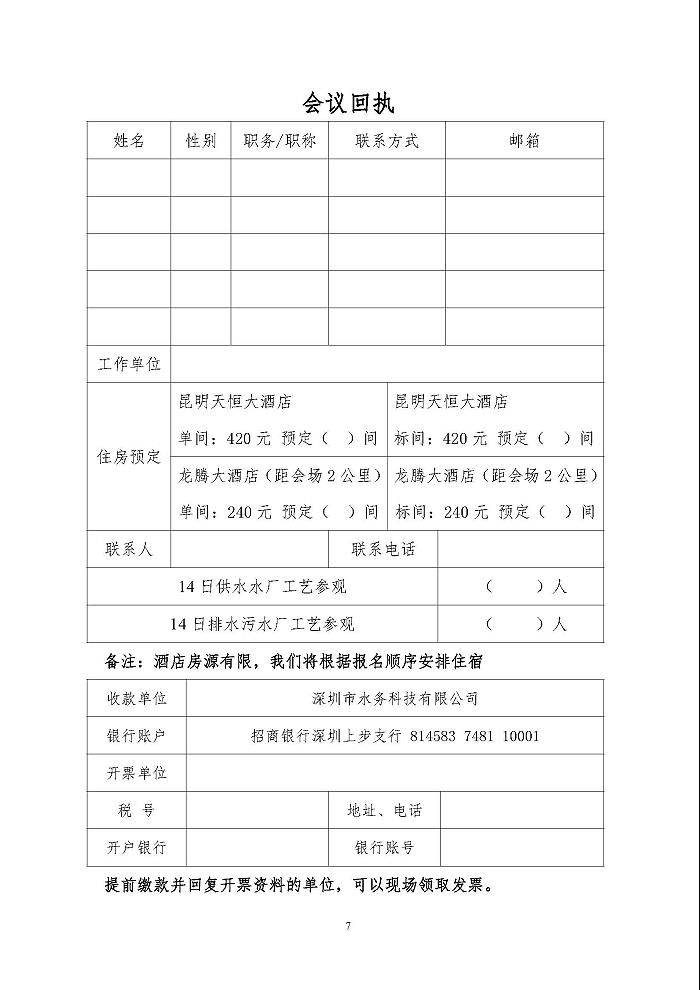 会议回执
姓名 性别 职务/职称 联系方式 邮箱
工作单位
住房预定
昆明天恒大酒店
单间：420 元 预定（ ）间
昆明天恒大酒店
标间：420 元 预定（ ）间
龙腾大酒店（距会场 2 公里）
单间：240 元 预定（ ）间
龙腾大酒店（距会场 2 公里）
标间：240 元 预定（ ）间
联系人 联系电话
14 日供水水厂工艺参观 （ ）人
14 日排水污水厂工艺参观 （ ）人
备注：酒店房源有限，我们将根据报名顺序安排住宿
收款单位 深圳市水务科技有限公司
银行账户 招商银行深圳上步支行 814583 7481 10001
开票单位
税 号 地址、电话
开户银行 银行账号
提前缴款并回复开票资料的单位，可以现场领取发票。
7